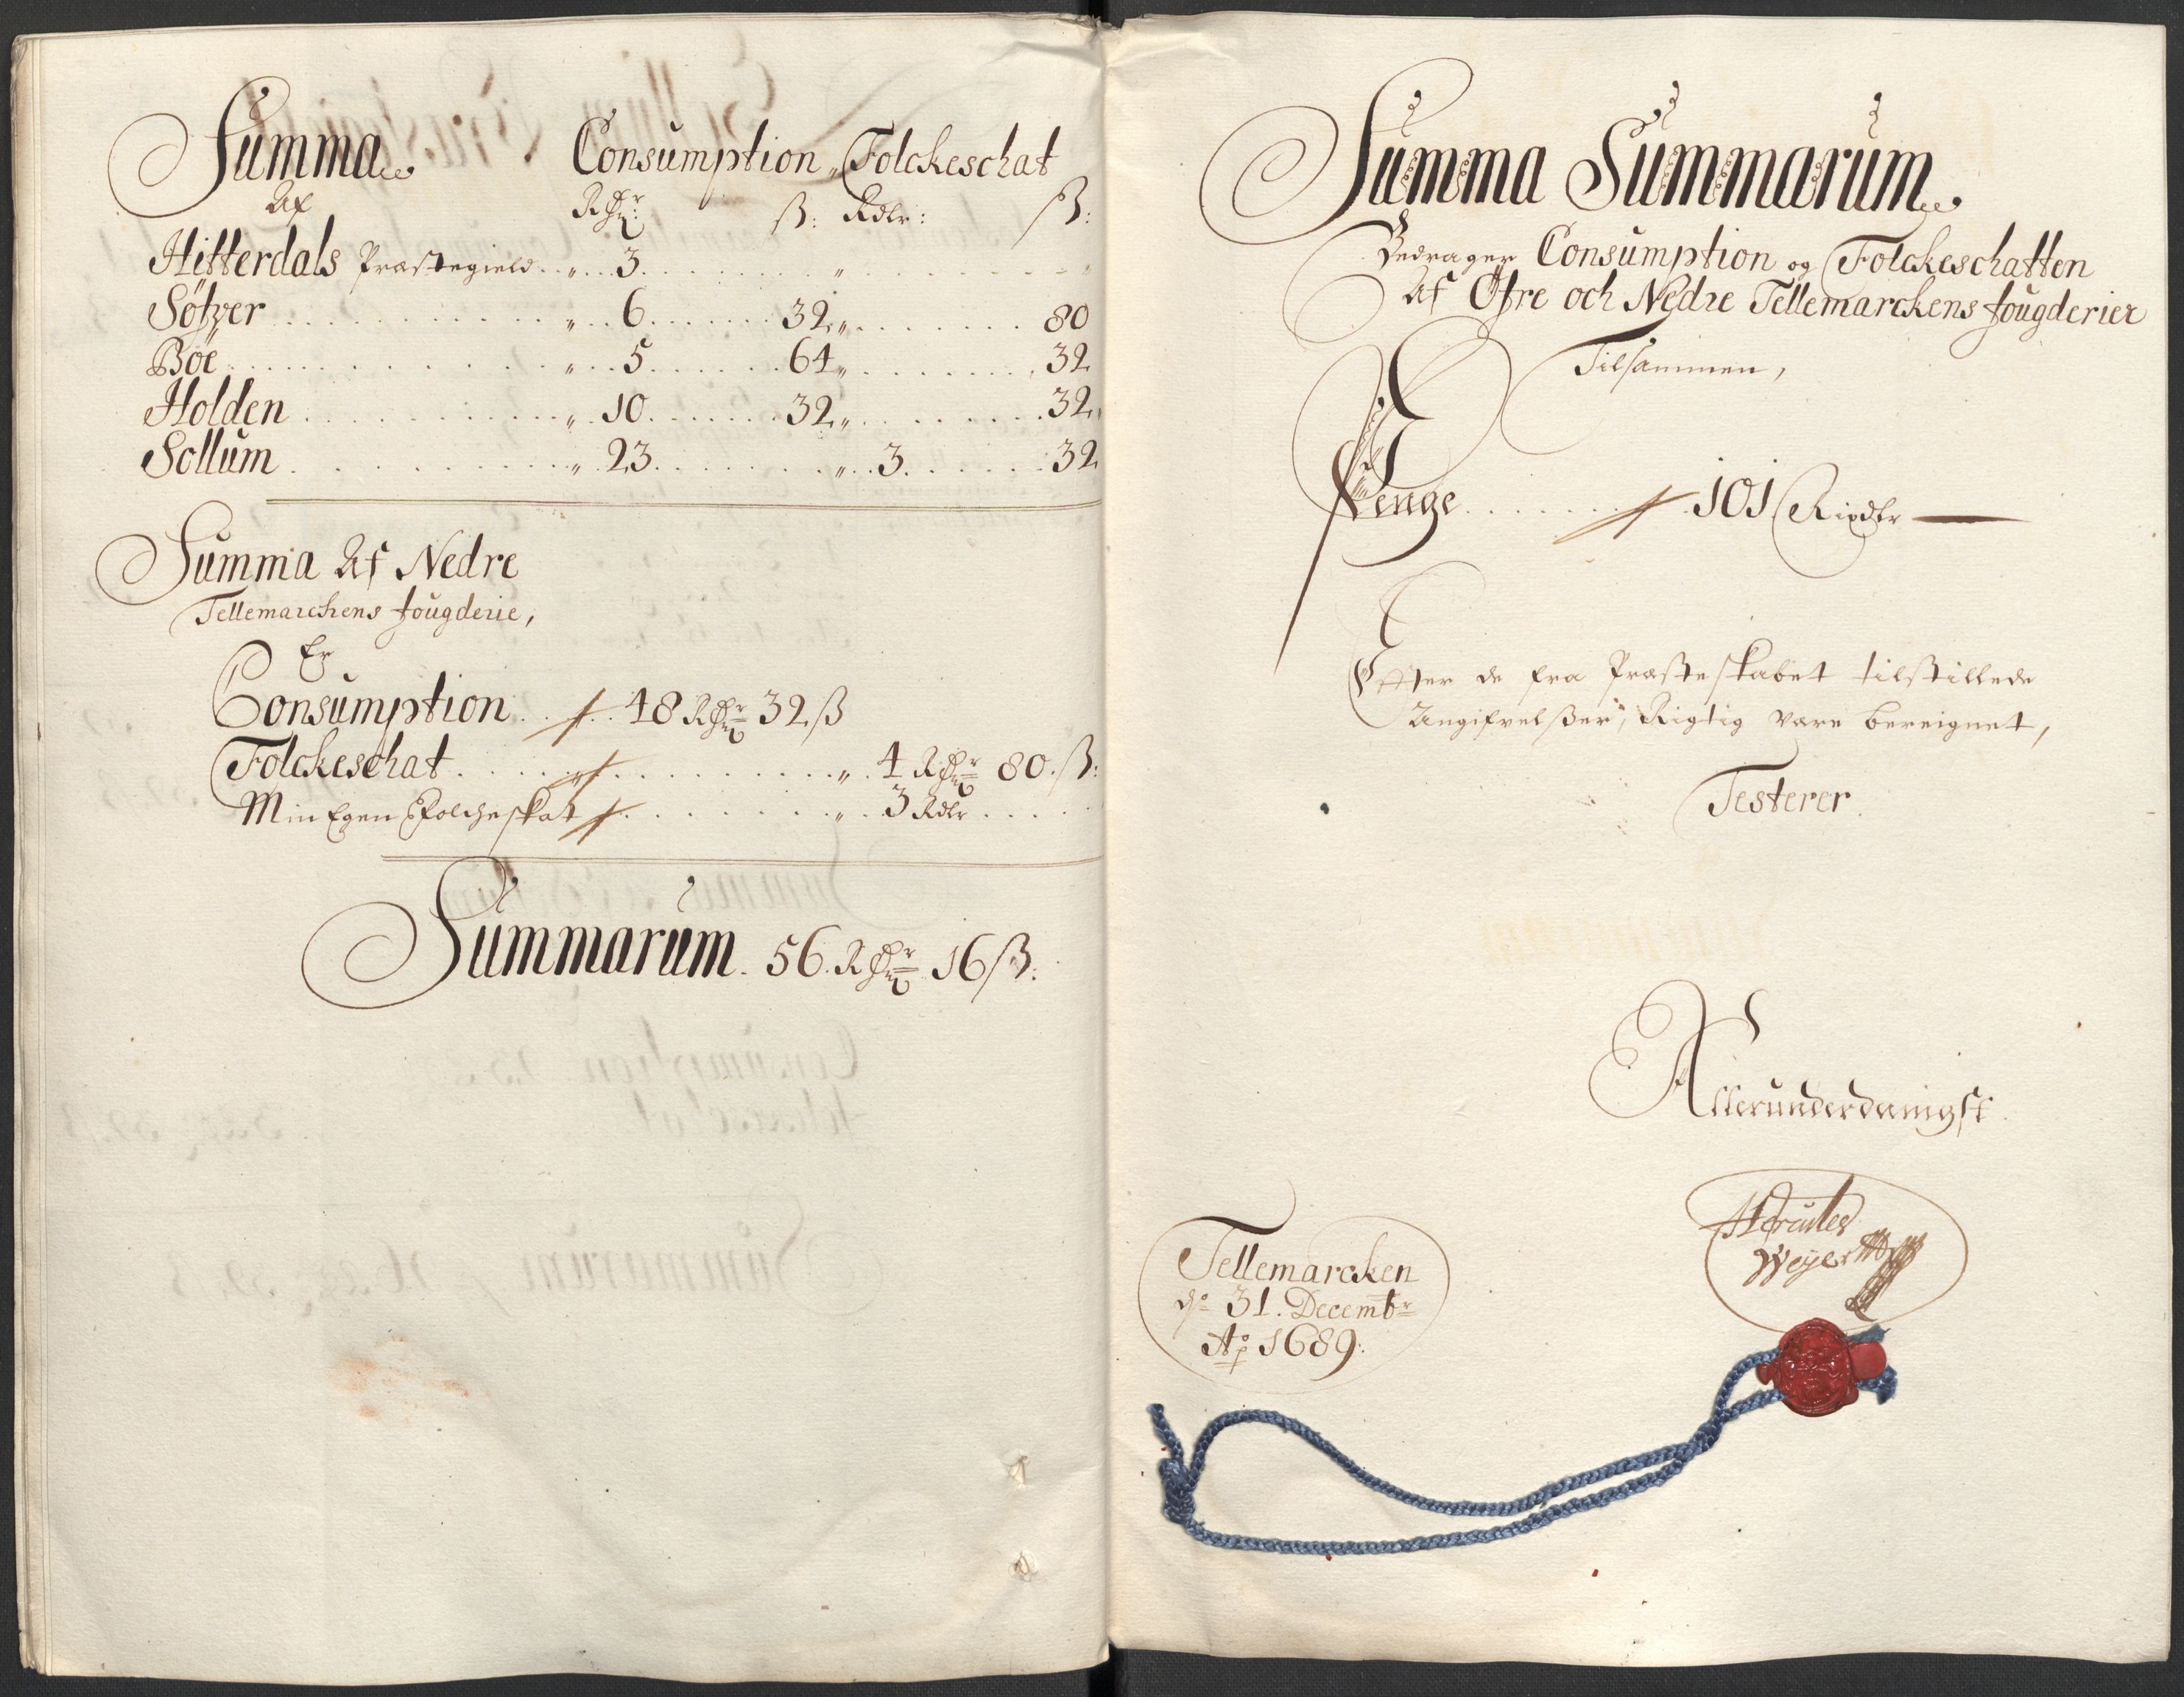 Summa Consumption „ Folckeschat
Af Rdr ß: Rdlr: ß:
Hitterdals Præstegield . . „ . . 3 . . . . . „ . . . . .
Söfver . . . . „ . . 6 . . . . 32 „ . . . . . 80
Böe . . . . „ . . 5 . . . . 64 „ . . . . . 32
Holden . . . . „ . 10 . . . . 32 „ . . . . . 32
Sollum . . . . „ . 23 . . . . „ . . 3 . . . . 32
Summa Af Nedre
Tellemarchens fougderie,
Er
Consumption . . . 48 Rdr 32 ß
Folckeschat . . . . . . . „ . 4 Rdr 80 . ß:
Min Egen Folcheskat . . . . . „ . 3 Rdlr . . . .
Summarum . 56 . Rdr 16 ß:
Summa Summarum
Bedrager Consumption og Folckeschatten
Af Öfre och Nedre Tellemarckens fougderier
Tilsammen,
Penge . . . . . 101 Rixdlr
Efter de fra Præsteskabet tilstillede
Angifvelßer, Rigtig vare bereignet,
Testerer
Allerunderdanigst
Tellemarcken
do 31. Decembr
Ao 1689:
Hercules
Weyer